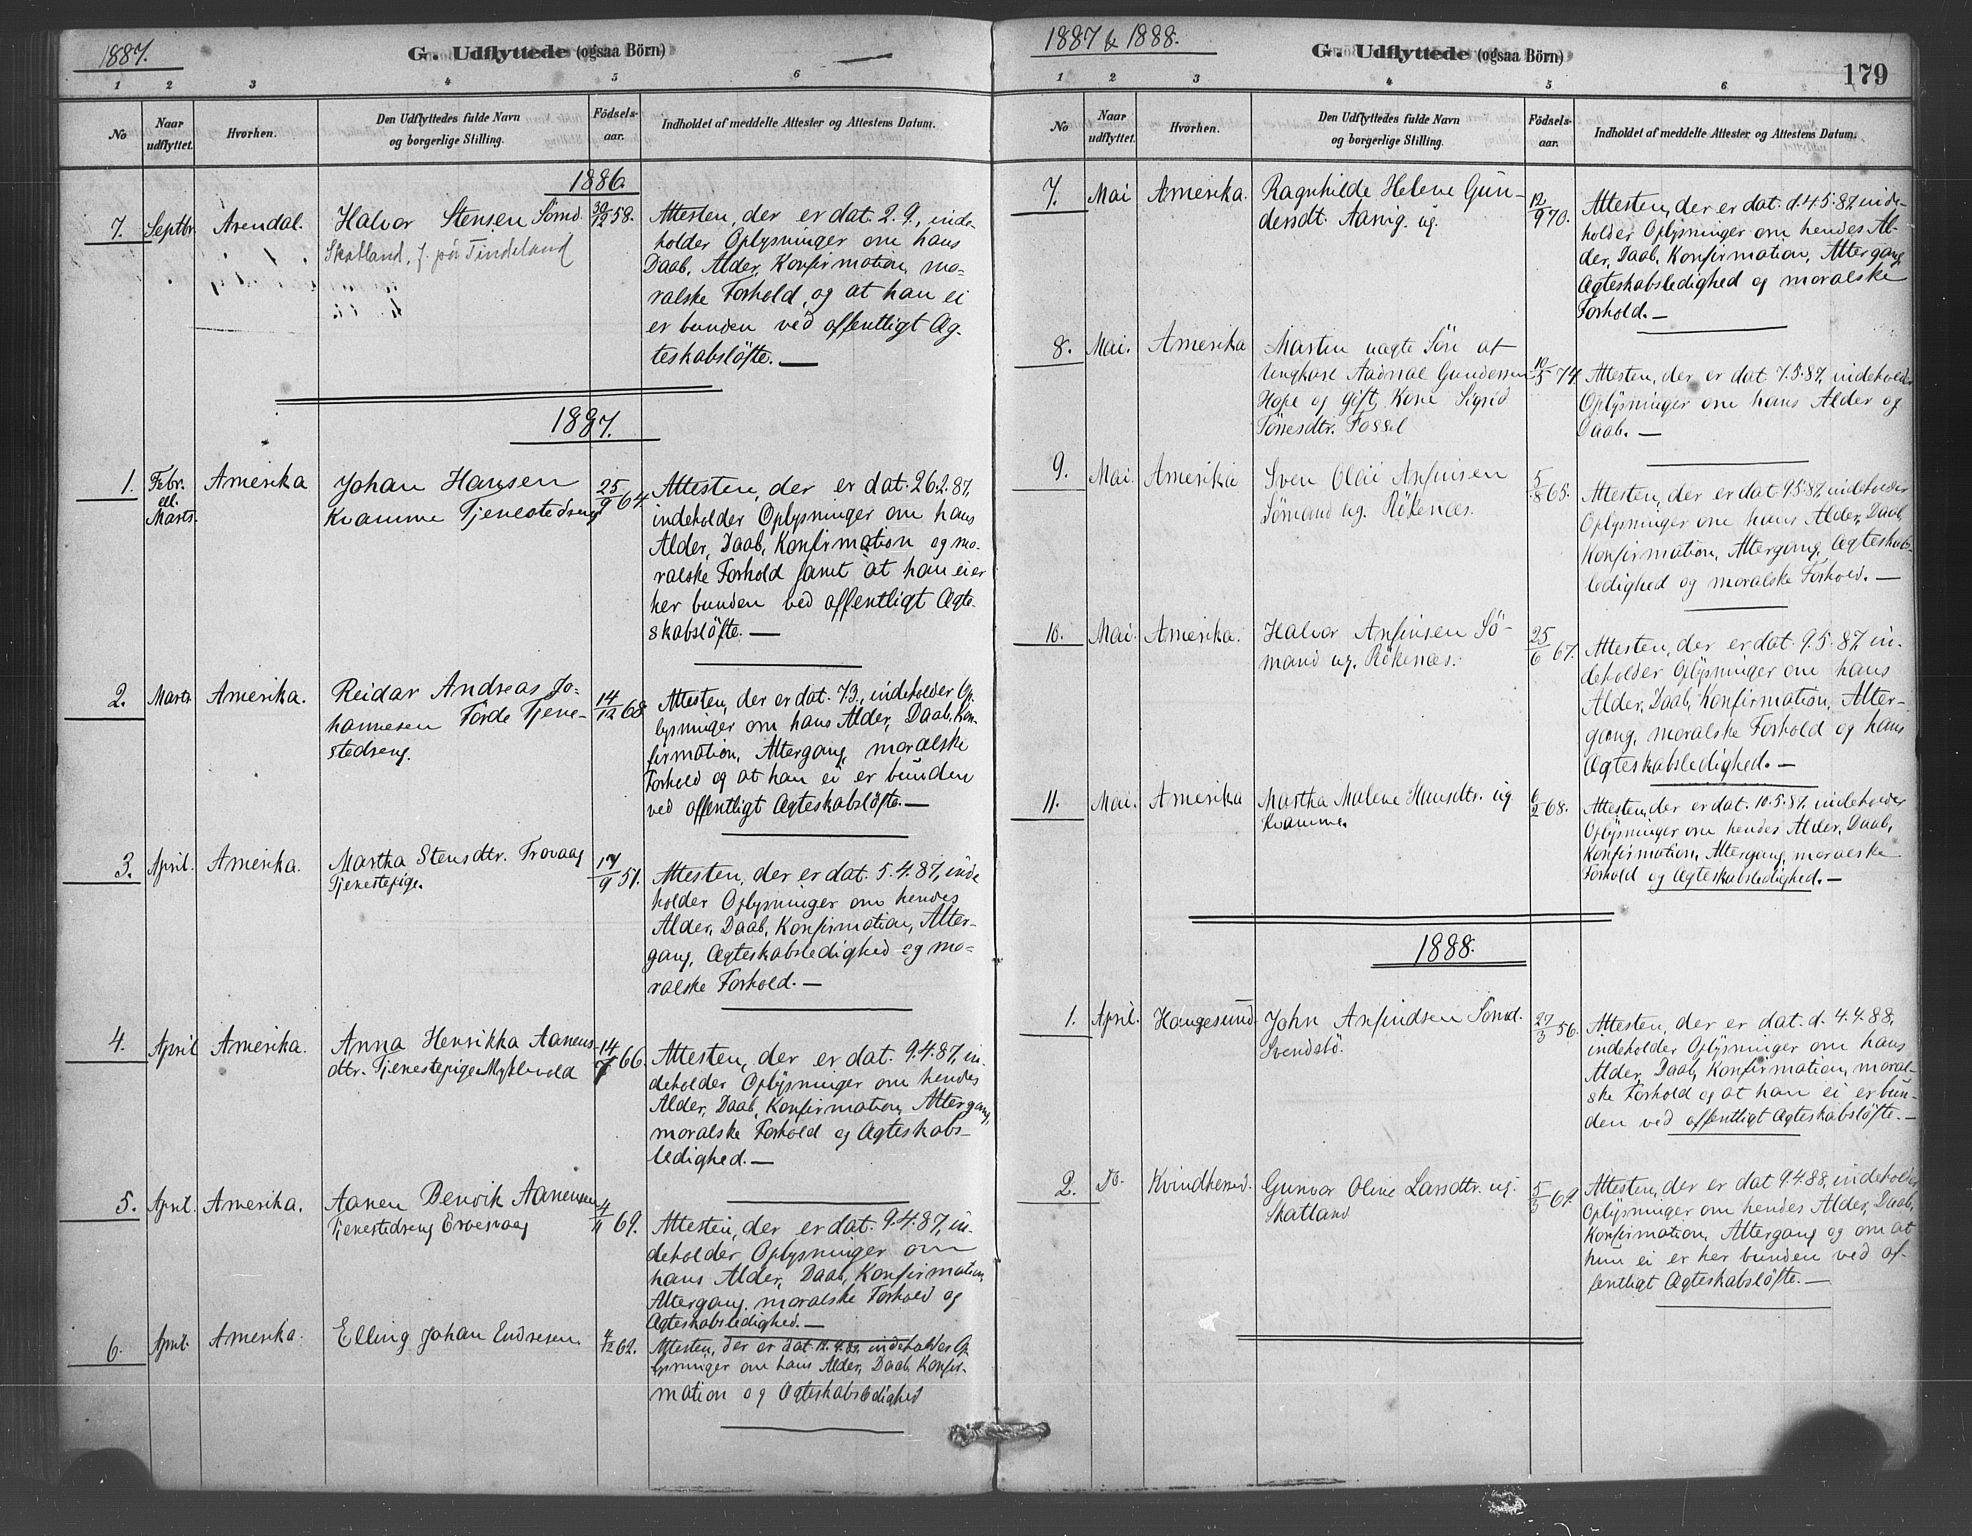 1887.
G. Udflyttede (ogsaa Börn)
1 2 3 4 5 6
No
Naar udflyttet.
Hvorhen.
Den Udflyttedes fulde Navn
og borgerlige Stilling.
Födsels-
aar.
Indholdet af meddelte Attester og Attestens Datum.
1886.
7. Septbr. Arendal. Halvor Stensen Sömd. 30/12 58.
Skatland, f. på Tindeland
Attesten, der er dat. 2.9, inde-
holder Oplysninger om hans
Daab, Alder, Konfirmation, mo-
ralske Forhold, og at han ei
er bunden ved offentligt Æg-
teskabsløfte. —
1887.
1. Febr. el. Marts. Amerika Johan Hansen 25/9 64.
Kvamme Tjenestedreng
Attesten, der er dat. 26.2.87,
indeholder Oplysninger om hans
Alder, Daab, Konfirmation og mo-
ralske Forhold samt at han ei er
her bunden ved offentligt Ægte-
skabsløfte. —
2. Marts Amerika. Reidar Andreas Jo- 14/12 68.
hannesen Förde Tjene-
stedreng.
Attesten, der er dat. 7.3., indeholder Op-
lysninger om hans Alder, Daab, Kon-
firmation, Altergang, moralske
Forhold og at han ei er bunden
ved offentligt Ægteskabsløfte. —
3. April. Amerika. Martha Stensdtr. Trovaag 17/9 51.
Tjenestepige.
Attesten, der er dat. 5.4.87, inde
holder Oplysninger om hendes
Alder, Daab, Konfirmation, Alter-
gang, Ægteskabsledighed og mo-
ralske Forhold. —
4. April Amerika. Anna Henrikka Aanens- 14/7 66.
dtr. Tjenestepige Myklevold
Attesten, der er dat. 9.4.87, in-
deholder Oplysninger om hendes
Alder, Daab, Konfirmation, Altergang,
moralske Forhold og Ægteskabs-
ledighed. —
5. April. Amerika. Aanen Benvik Aanensen 4/11 69.
Tjenestedreng Ervesvaag
Attesten, der er dat. 9.4.87, in-
deholder Oplysninger om
hans Alder, Daab, Konfirmation,
Altergang, moralske Forhold og
Ægteskabsledighed. —
6. April. Amerika. Elling Johan Endresen 4/12 62.
Attesten, der er dat. 12.4.87, indeholder Op-
lysninger om hans Alder, Daab, Konfir-
mation og Ægteskabsledighed
1887 & 1888.
G. Udflyttede (ogsaa Börn)
179
1 2 3 4 5 6
No
Naar udflyttet.
Hvorhen.
Den Udflyttedes fulde Navn
og borgerlige Stilling.
Födsels-
aar.
Indholdet af meddelte Attester og Attestens Datum.
7. Mai Amerika. Ragnhilde Helene Gun- 12/9 70.
dersdt. Aasvig. ug.
Attesten, der er dat. d. 4.5.87, inde-
holder Oplysninger om hendes Al-
der, Daab, Konfirmation, Altergang,
Ægteskabsledighed og moralske
Forhold. —
8. Mai. Amerika Martin uægte Sön af 10/5 74.
Ungkarl Aadne Gundersen
Hope og gift Kone Sigrid
Törresdtr. Fossel
Attesten, der er dat 7.5.87, indeholder
Oplysninger om hans Alder og
Daab. —
9. Mai Amerika Sven Olai Anfinsen 5/8 65.
Sömand ug. Rökenæs.
Attesten, der er dat. 9.5.87, indeholder
Oplysninger om hans Alder, Daab,
Konfirmation, Altergang, Ægteskabs-
ledighed og moralske Forhold. —
10. Mai. Amerika. Halvor Anfinsen Sö- 25/6 67.
mand ug. Rökenæs.
Attesten, der er dat. 9.5.87, in-
deholder Oplysninger om hans
Alder, Daab, Konfirmation, Alter-
gang, moralske Forhold og hans
Ægteskabsledighed. —
11. Mai. Amerika Martha Malene Hansdtr. ug 6/2 68.
Kvamme.
Attesten, der er dat. 10.5.87, indeholder
Oplysninger om hendes Alder, Daab,
Konfirmation, Altergang, moralske
Forhold og Ægteskabsledighed. —
1888.
1. April. Haugesund. John Anfindsen Sömd. 27/3 56.
Svendsbö.
Attesten, der er dat. d. 4.4.88,
indeholder Oplysninger om hans
Alder, Daab, Konfirmation, moral-
ske Forhold og at han ei er bun-
den ved offentligt Ægteskabsløfte. —
2. Do. Kvindherred. Gunvor Oline Larsdtr. ug. 5/5 69.
Skatland
Attesten, der er dat 9.4.88, indeholder
Oplysninger om hendes Alder, Daab,
Konfirmation, Altergang og om at
hun ei er her bunden ved of-
fentligt Ægteskabsløfte. —